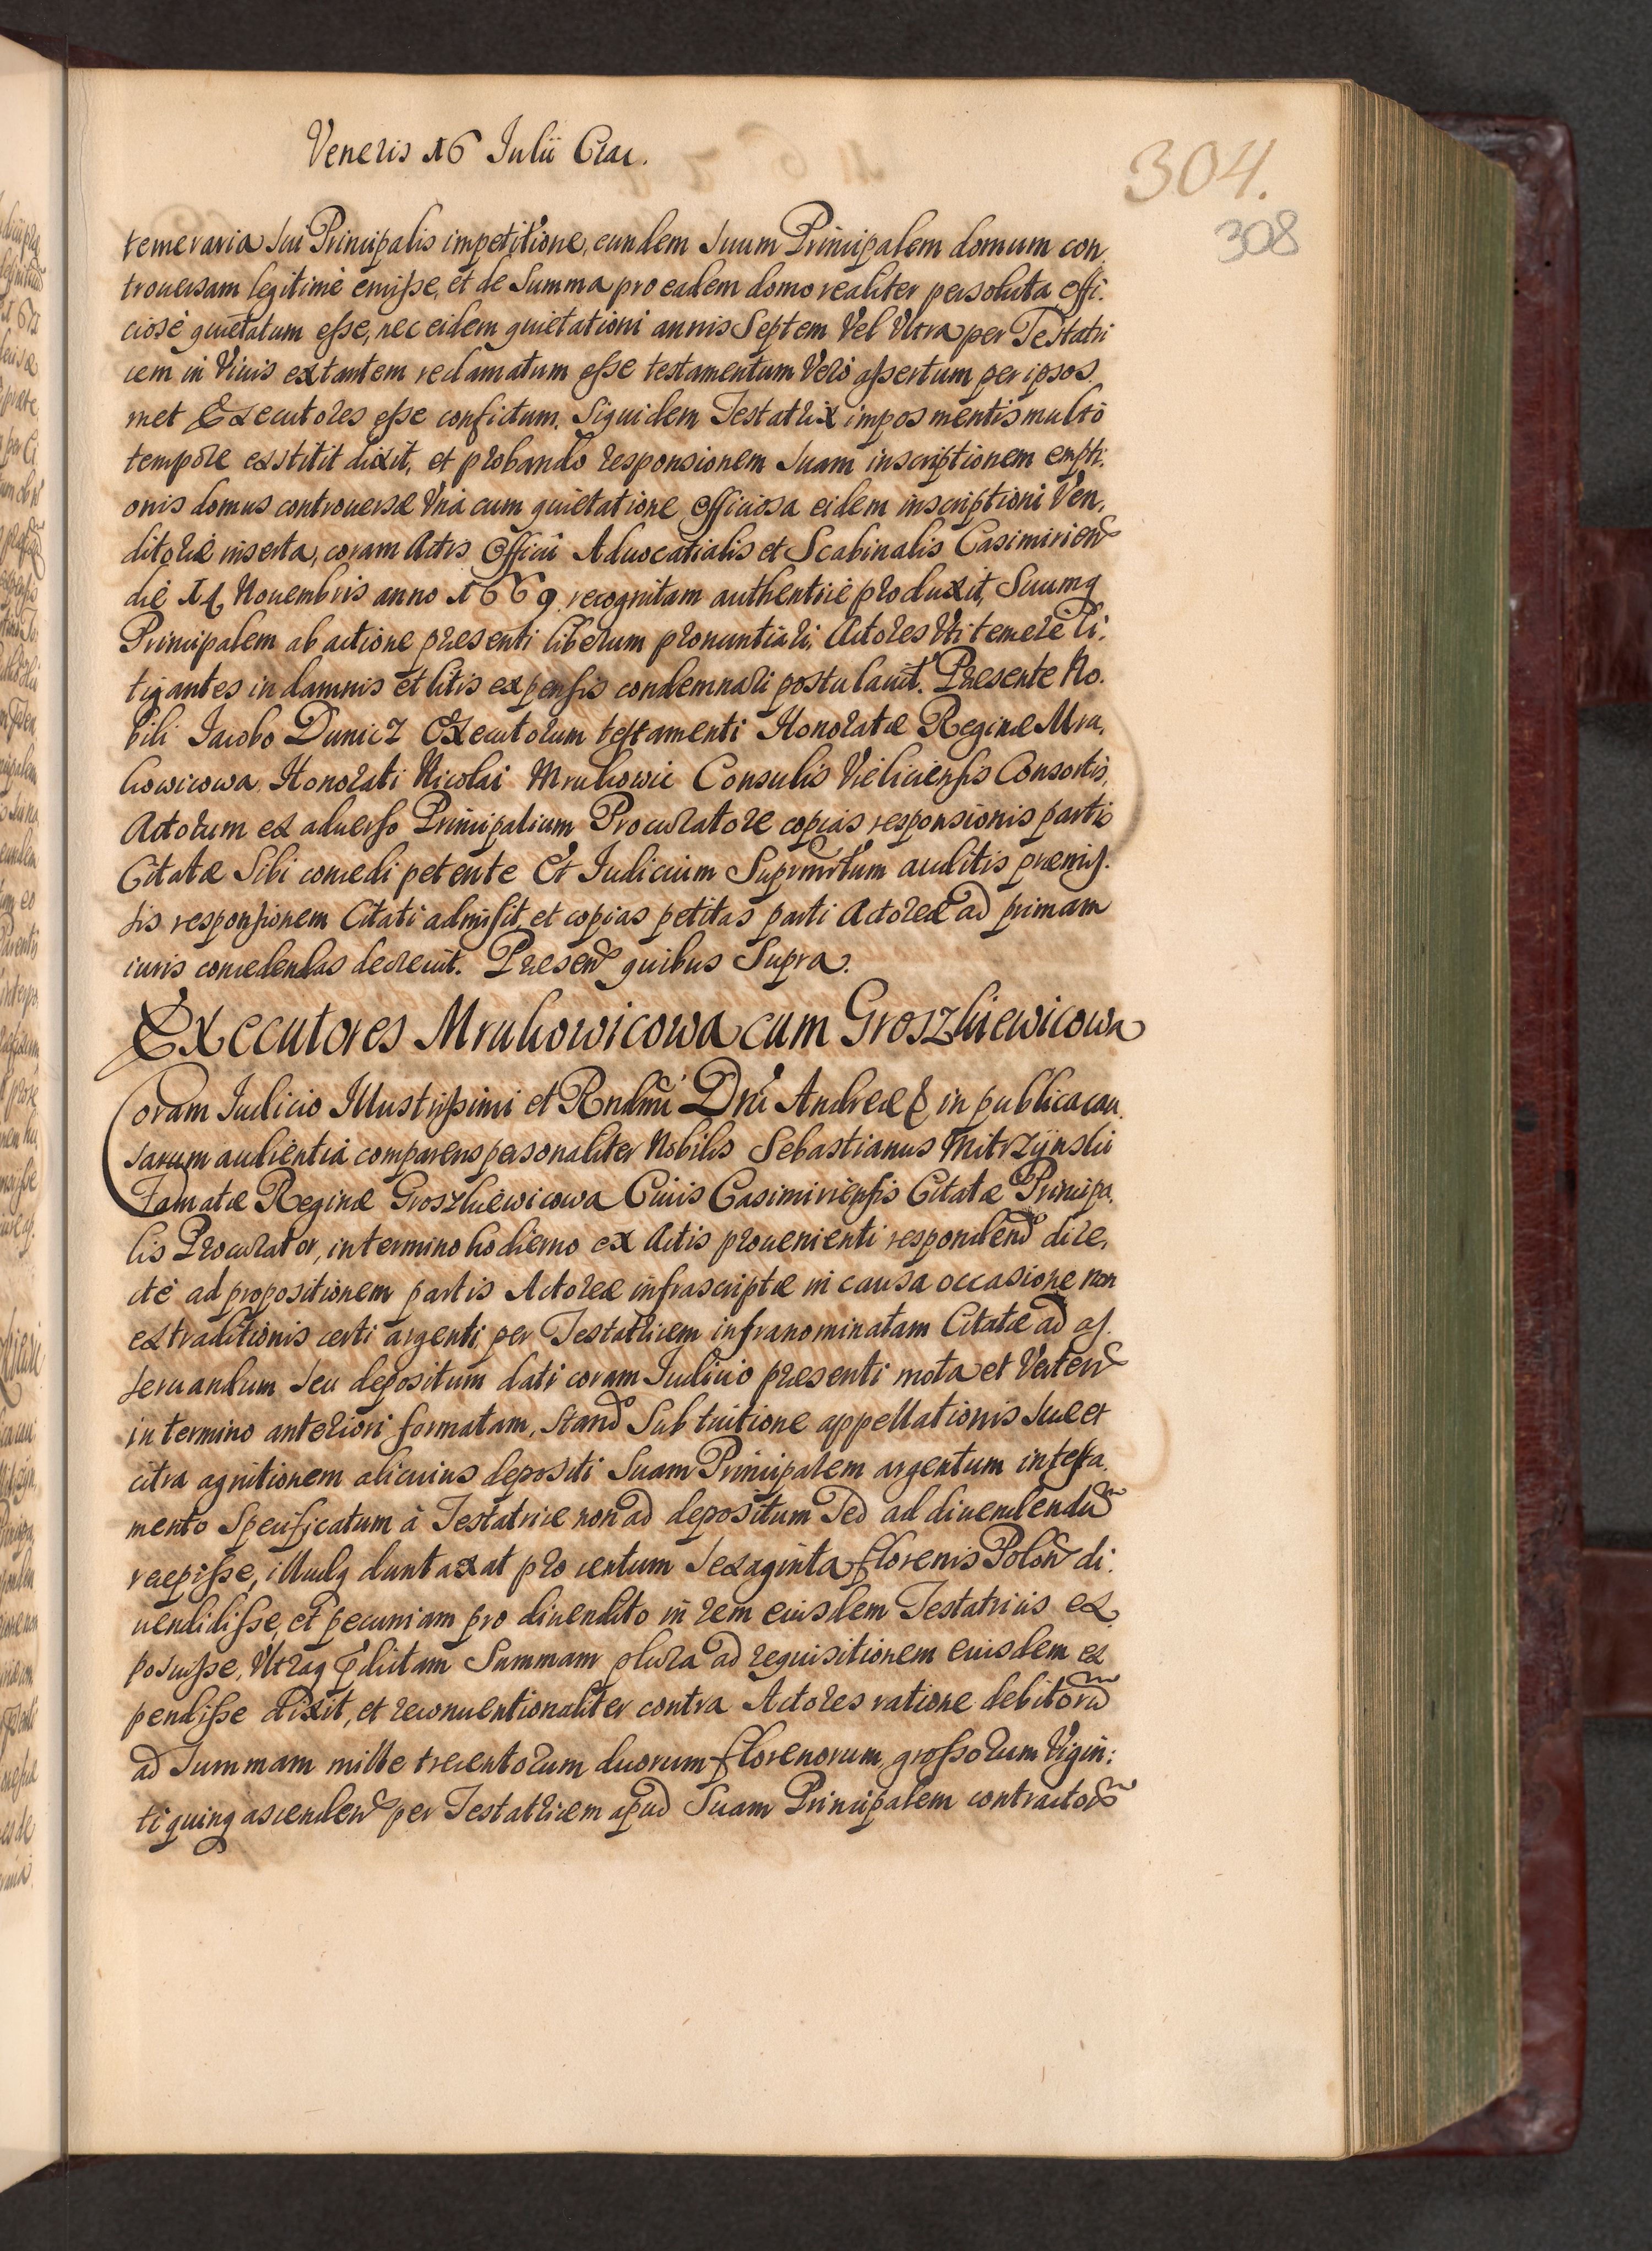 Veneris 16 Iulii Crac.
304.
308
temeraria sui Principalis impetitione, eundem suum Principalem domum con,
trouersam legitimè emisse, et de Summa pro eadem domo realiter persoluta offi:
ciosè quietatum esse, nec eidem quietationi annis Septem Vel Vltra per Testatri
cem in Viuis extantem reclamatum esse testamentum Verò assertum per ipsos.
met Executores esse confictum. Siquidem Testatrix impos mentis multò
tempore exstitit dixit, et probando responsionem suam inscriptionem empti:
onis domus controuersæ Vnà cum quietatione officiosa eidem inscriptioni Ven,
ditoriæ inserta, coram Actis Officii Aduocatialis et Scabinalis Casimirien
diè 14 Nouembris anno 1669 recognitam authenticè produxit, Suumq
Principalem ab actione præsenti liberum pronuntiari, Actores Vti temerè li:
tigantes in damnis et litis expensis condemnari postulauit. Præsente No.
bili Iacobo Dunicz Executorum testamenti Honoratæ Reginæ Mra,
kowicowa Honorati Nicolai Mrukowic Consulis Vieliciensis Consortis,
Actorum ex aduerso Principalium Procuratore copias responsionis partis
Citatæ Sibi concedi petente Et Iudicium Suprmrtum auditis præmis.
sis responsionem Citati admisit, et copias petitas parti Actoreæ ad primam
iuris concedendas decreuit. Præsen quibus Supra.
Executores Mrukowicowa cum Groszkiewicowa
Coram Iudicio Illustrissimi et Rndmi Dni Andreæ & in publica cau,
sarum audientia comparens personaliter Nobilis Sebastianus Mitrzynski
Famatæ Reginæ Groszkiewicowa Ciuis Casimiriensis Citatæ Principa,
lis Procurator, in termino hodierno ex Actis prouenienti respondend dire,
ctè ad propositionem partis Actoreæ infrascriptæ in causa occasione non
extraditionis certi argenti, per Testatricem infranominatam Citatæ ad as.
seruandum, seu depositum dati coram Iudicio præsenti mota et Verten
in termino anteriori formatam, stand Sub tuitione appellationis suæ et
citra agnitionem alicuius depositi Suam Principalem argentum in testa.
mento Specificatum à Testatrice non ad depositum Sed ad diuendendu
recepisse, illudq duntaxat pro centum sexaginta florenis Polon di:
uendidisse, et pecuniam pro diuendito in rem eiusdem Testatricis ex,
posuisse, Vltraq pdictam Summam plura ad requisitionem eiusdem ex
pendisse dixit, et reconuentionaliter contra Actores ratione debitoru
ad Summam mille trecentorum duorum florenorum, grossorum Vigin:
ti quinq ascenden per Testatricem apud Suam Principalem contractor